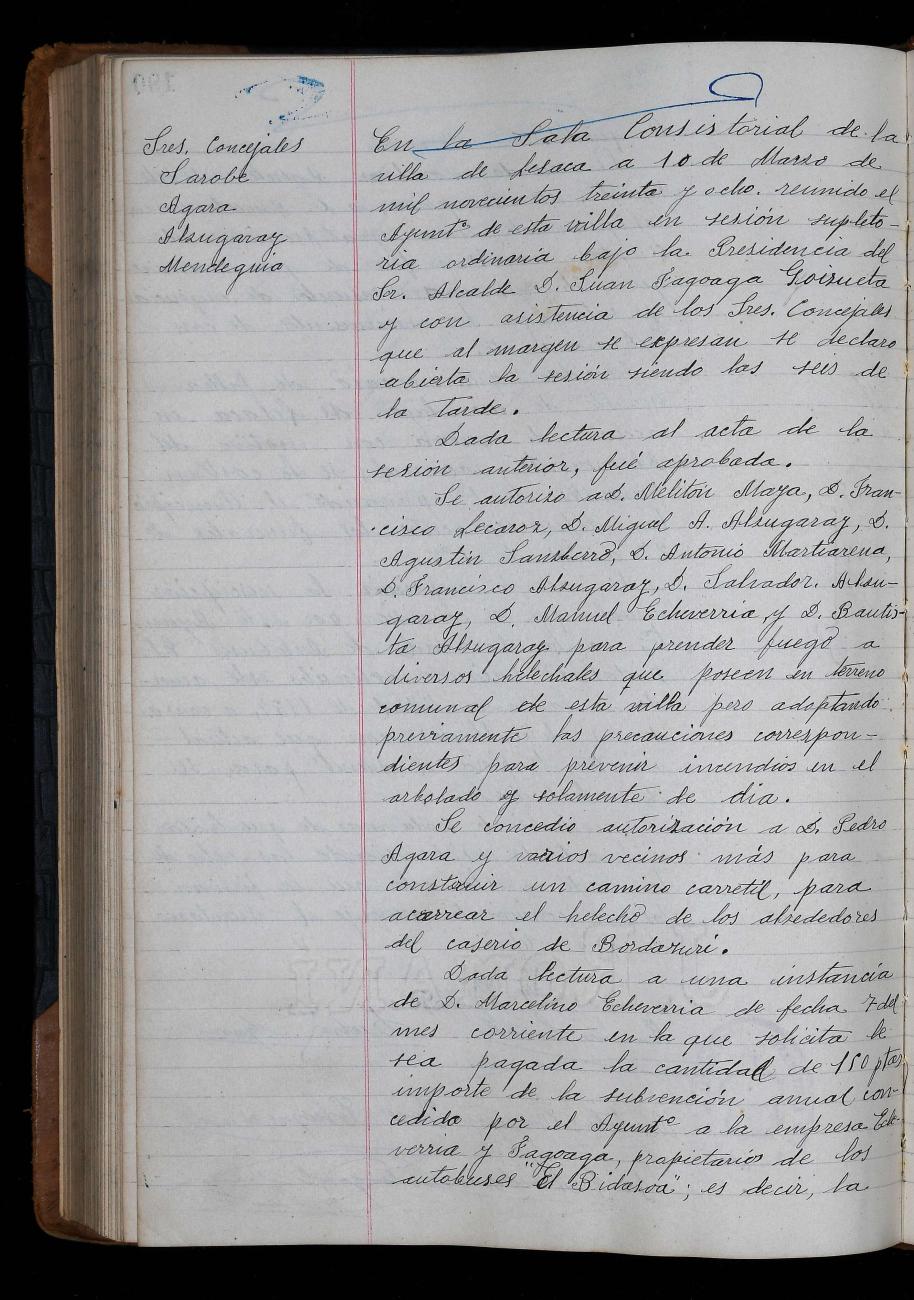 Sres. Concejales
Sarobe
Agara
Alzugaray
Mendeguia
En la Sala Consistorial de la
villa de Lesaca a 10 de Marzo de
mil novecientos treinta y ocho. reunido el
Ayuntº de esta villa en sesión supleto-
ria ordinaria bajo la Presidencia del
Sr. Alcalde D. Juan Fagoaga Goizueta
y con asistencia de los Sres. Concejales
que al margen se expresan se declaro
abierta la sesión siendo las seis de
la tarde.
Dada lectura al acta de la
sesión anterior, fué aprobada.
Se autorizo a D. Melitón Maya, D. Fran-
cisco Lecaroz, D. Miguel A. Alzugaray, D.
Agustin Sansberro, D. Antonio Martiarena,
D. Francisco Alzugaray, D. Salvador. Alzu-
garay, D. Manuel Echeverria y D. Bautis-
ta Alzugaray para prender fuego a
diversos helechales que poseen en terreno
comunal de esta villa pero adoptando
previamente las precauciones correspon-
dientes para prevenir incendios en el
arbolado y solamente de dia.
Se concedio autorización a D. Pedro
Agara y varios vecinos más para
construir un camino carretil, para
acarrear el helecho de los alrededores
del caserio de Bordazuri.
Dada lectura a una instancia
de D. Marcelino Echeverria de fecha 7 del
mes corriente en la que solicita le
sea pagada la cantidad de 150 ptas
importe de la subvención anual con-
cedida por el Ayuntº a la empresa Eche-
verria y Fagoaga, propietarios de los
autobuses "El Bidasoa"; es decir, la